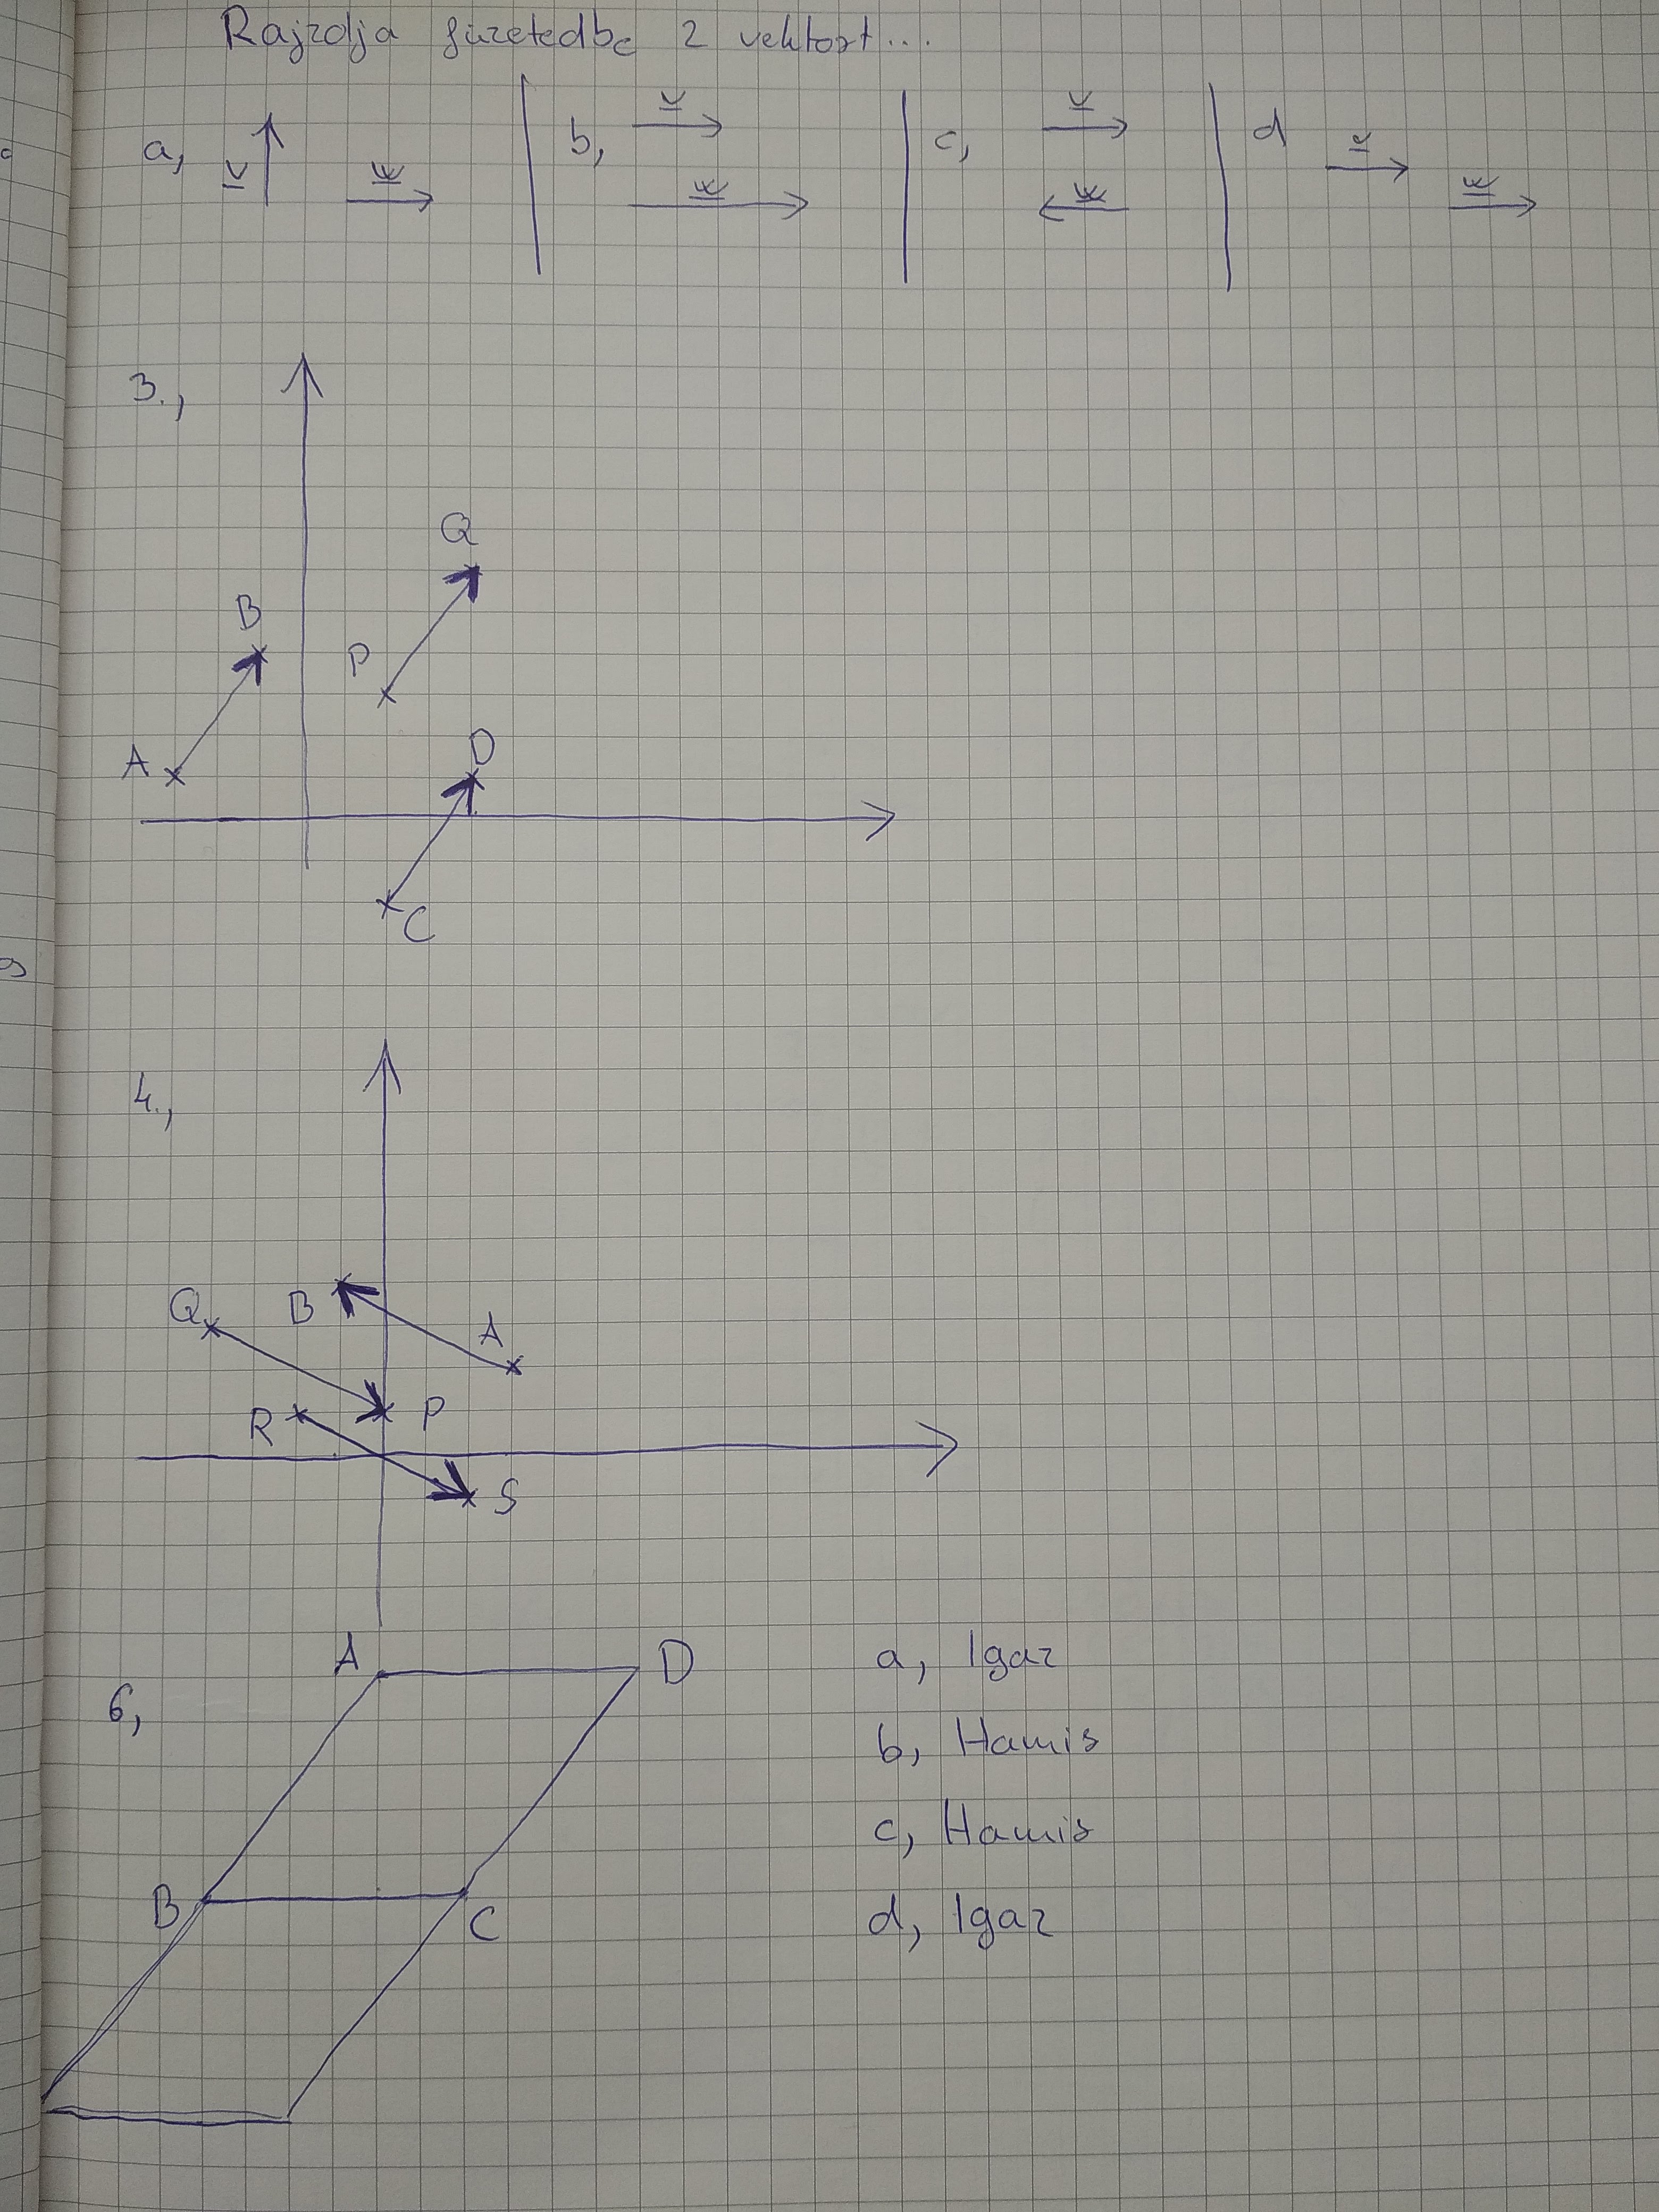 Rajzolja füzetedbe 2 vektort...
a, v w b, v w c, v w d v w
3.,
Q
B
P
D
A
C
4.,
Q B A
R P
S
A D a, Igaz
6, b, Hamis
c, Hamis
B C d, Igaz